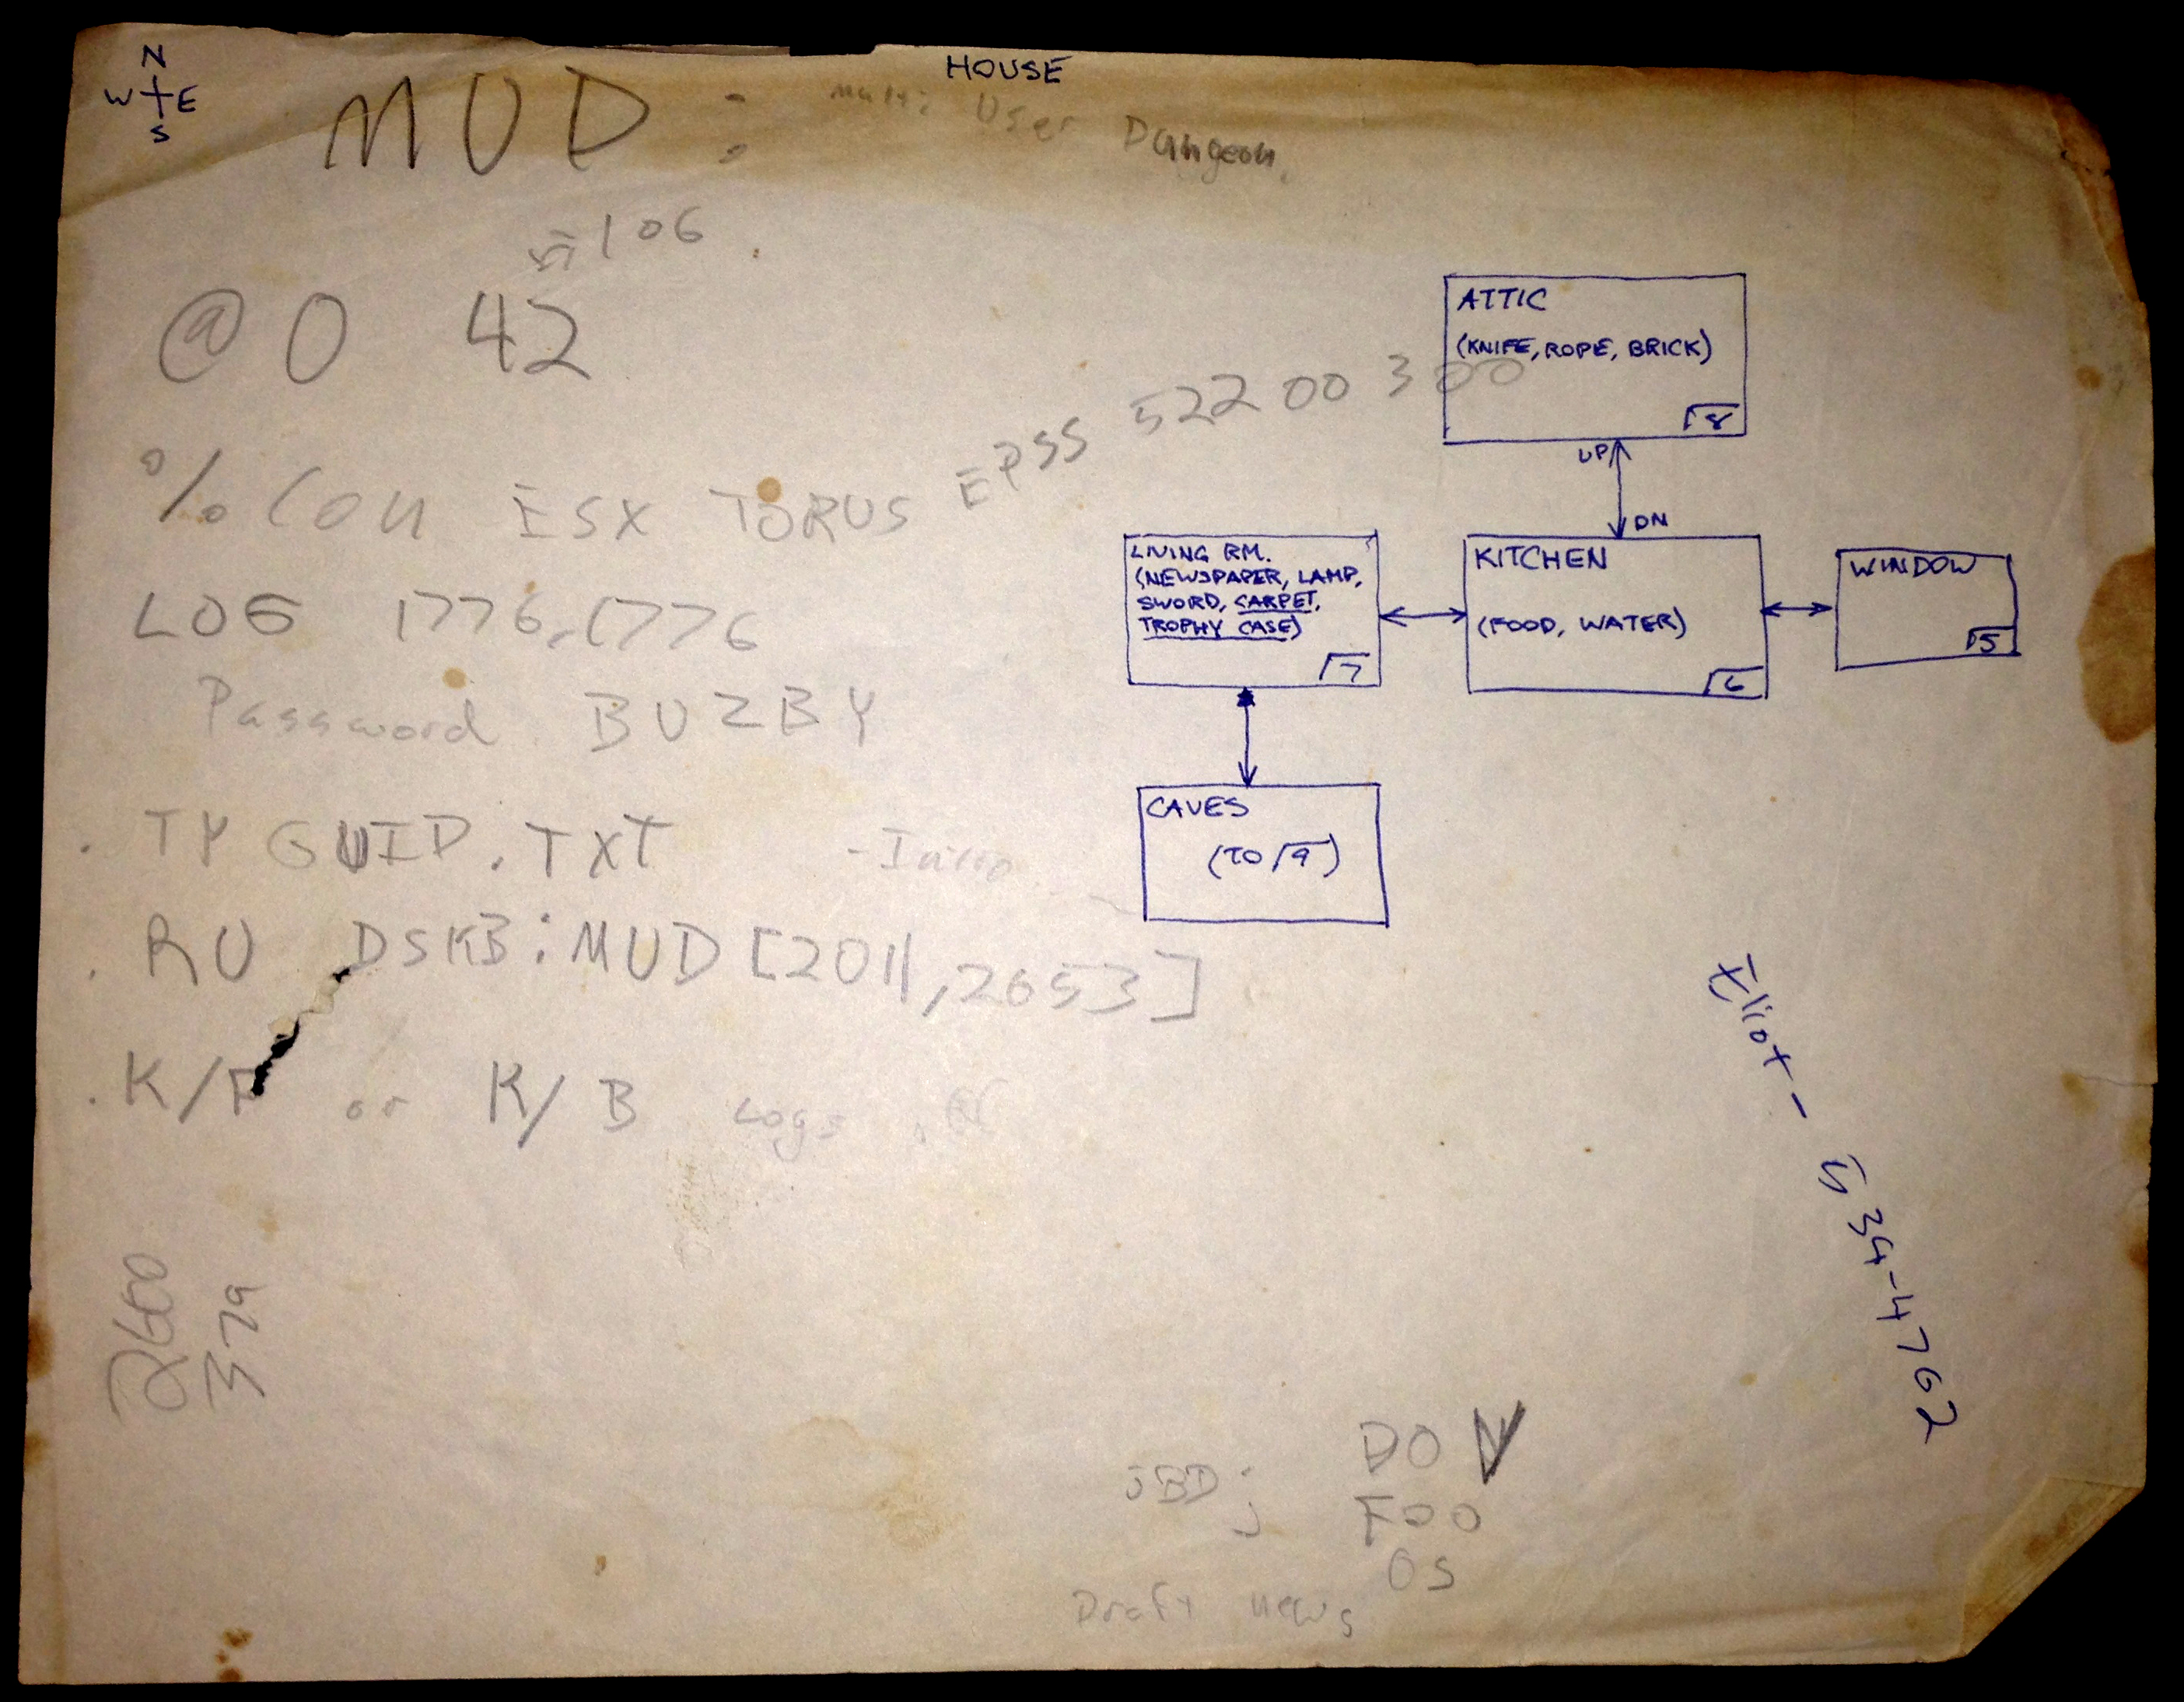 N
W E
S
HOUSE
MUD : Multi User Dungeon.
106
@ 0 42
% Con ESX TORUS EPSS 522 00 300
LOG 1776,1776
Password BUZBY
. TY GUID.TXT - Intro
. RU DSKB:MUD [2011,2653]
. K/F or K/B Logs
ATTIC
(KNIFE, ROPE, BRICK)
8
UP
DN
LIVING RM.
(NEWSPAPER, LAMP,
SWORD, CARPET,
TROPHY CASE)
7
KITCHEN
(FOOD, WATER)
6
WINDOW
5
CAVES
(TO 9)
Eliot - 534-4762
379
JBD:
DO
FOO
OS
Draft news